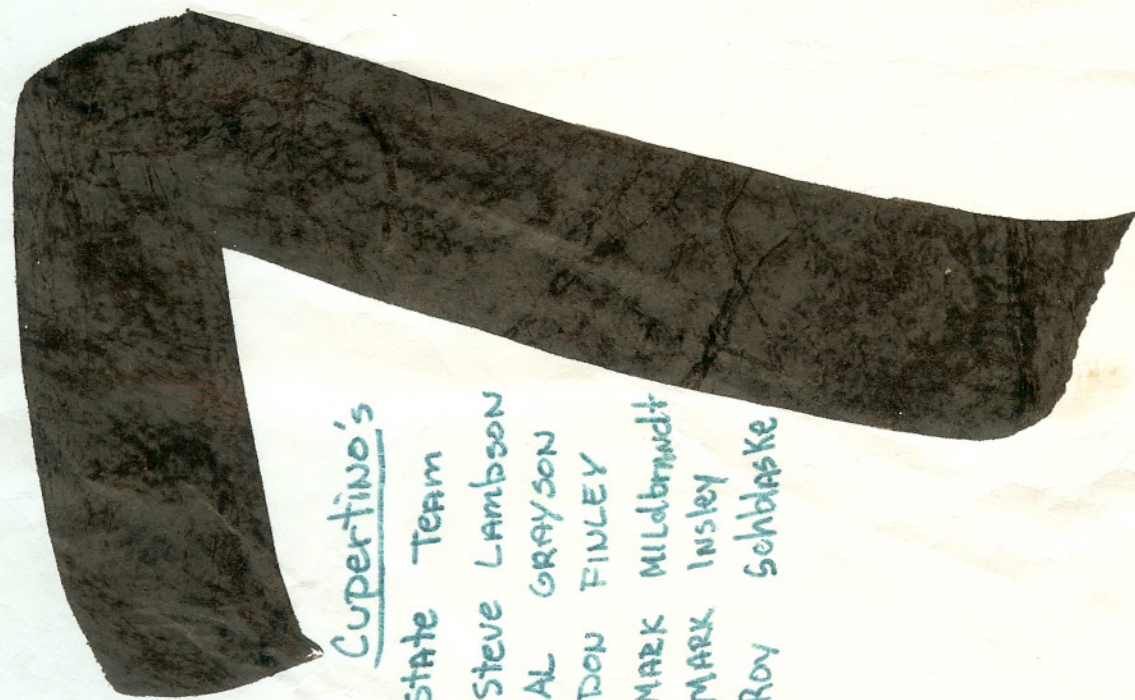 Cupertino's
State Team
Steve Lambson
AL GRAYSON
DON FINLEY
MARK Mildbrandt
MARK Insley
Roy Schblaske
7